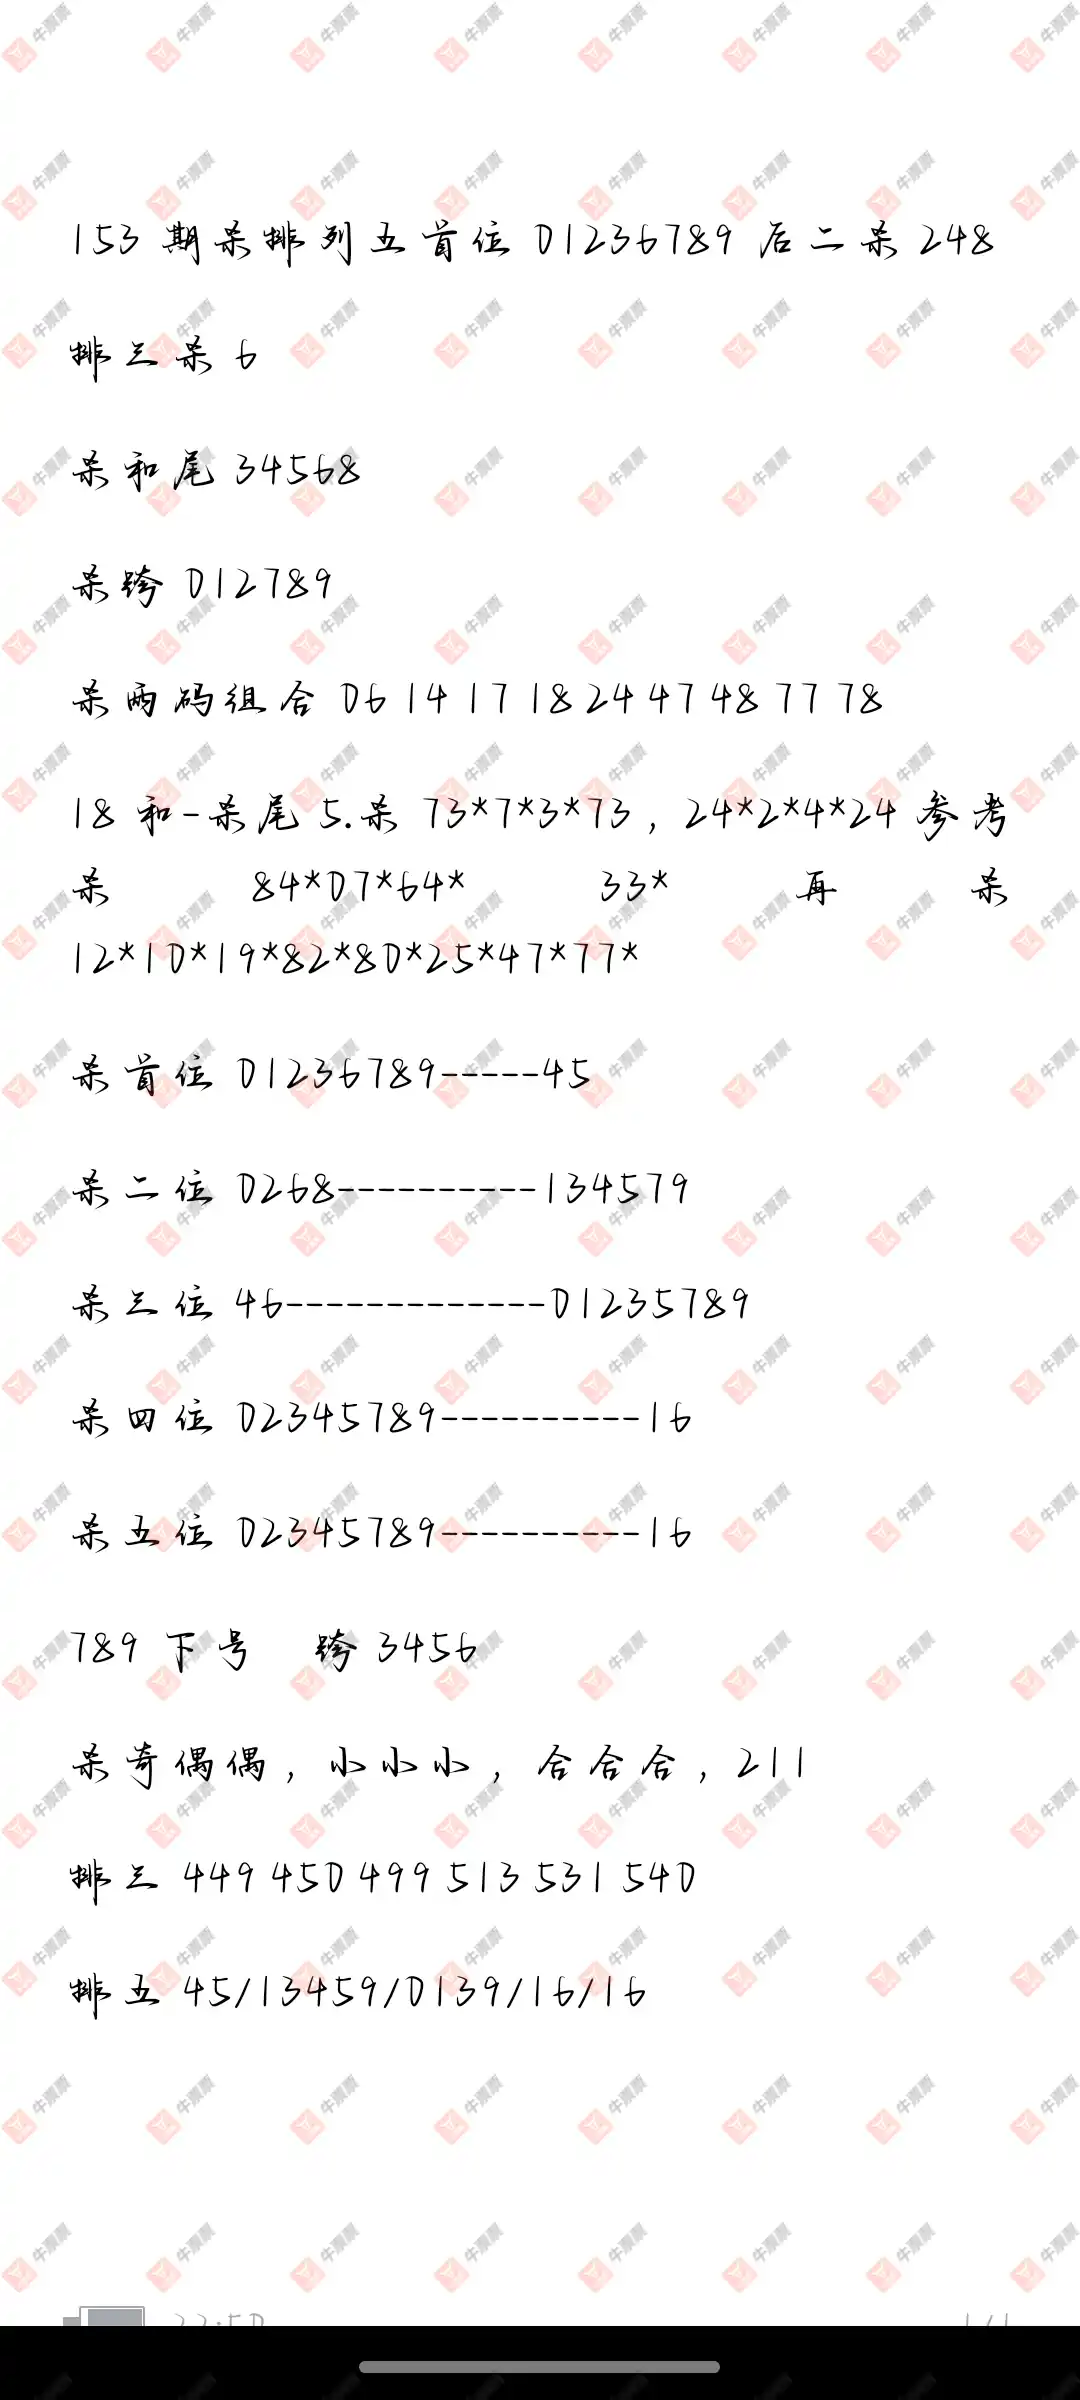 153 期杀排列五首位 01236789 后二杀 248
排三杀 6
杀和尾 34568
杀跨 012789
杀两码组合 06 14 17 18 24 47 48 77 78
18 和-杀尾 5.杀 73*7*3*73，24*2*4*24 参考
杀 84*07*64* 33* 再 杀
12*10*19*82*80*25*47*77*
杀首位 01236789-----45
杀二位 0268----------134579
杀三位 46-------------01235789
杀四位 02345789----------16
杀五位 02345789----------16
789 下号 跨 3456
杀奇偶偶，小小小，合合合，211
排三 449 450 499 513 531 540
排五 45/13459/0139/16/16